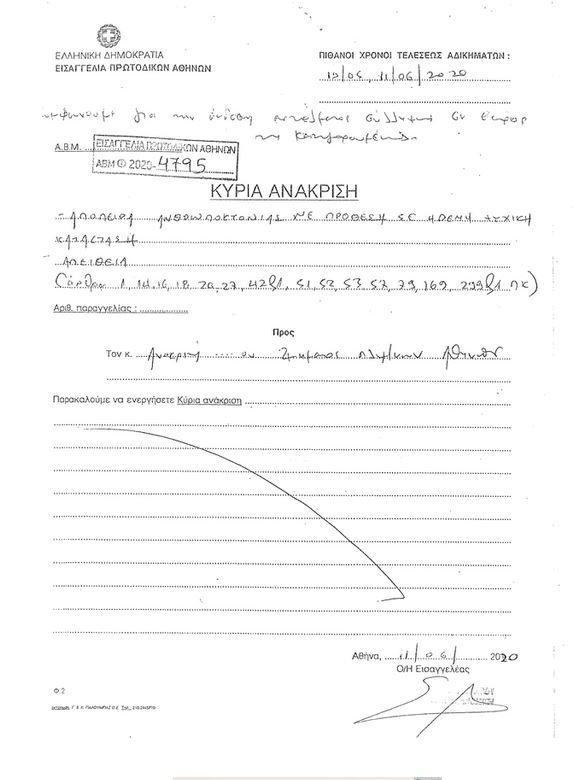 ΕΛΛΗΝΙΚΗ ΔΗΜΟΚΡΑΤΙΑ
ΕΙΣΑΓΓΕΛΙΑ ΠΡΩΤΟΔΙΚΩΝ ΑΘΗΝΩΝ
ΠΙΘΑΝΟΙ ΧΡΟΝΟΙ ΤΕΛΕΣΕΩΣ ΑΔΙΚΗΜΑΤΩΝ :
10/06, 11/06/2020
για την έκδοση εντάλματος σύλληψης
της κατηγορουμένης
Α.Β.Μ.
ΕΙΣΑΓΓΕΛΙΑ ΠΡΩΤΟΔΙΚΩΝ ΑΘΗΝΩΝ
ΑΒΜ 2020-4795
ΚΥΡΙΑ ΑΝΑΚΡΙΣΗ
ΑΠΟΠΕΙΡΑ ΑΝΘΡΩΠΟΚΤΟΝΙΑΣ ΜΕ ΠΡΟΘΕΣΗ ΣΕ ΗΡΕΜΗ ΨΥΧΙΚΗ
ΚΑΤΑΣΤΑΣΗ
ΑΠΕΙΘΕΙΑ
(άρθρα 1, 14, 16, 18, 26, 27, 42§1, 51, 52, 53, 57, 79, 169, 299§1 ΠΚ)
Αριθ. παραγγελίας :
Προς
Τον κ. Ανακριτή του Τμήματος Πλημ/κων Αθηνών
Παρακαλούμε να ενεργήσετε Κύρια ανάκριση
Αθήνα, 11/06/2020
Ο/Η Εισαγγελέας
Φ.2